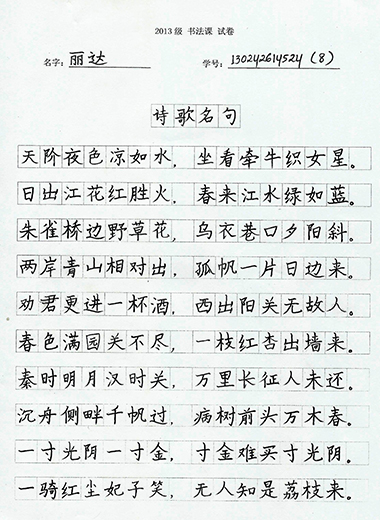 2013级 书法课 试卷
名字: 丽达 学号: 130242614524 (8)
诗歌名句
天阶夜色凉如水, 坐看牵牛织女星。
日出江花红胜火, 春来江水绿如蓝。
朱雀桥边野草花, 乌衣巷口夕阳斜。
两岸青山相对出, 孤帆一片日边来。
劝君更进一杯酒, 西出阳关无故人。
春色满园关不尽, 一枝红杏出墙来。
秦时明月汉时关, 万里长征人未还。
沉舟侧畔千帆过, 病树前头万木春。
一寸光阴一寸金, 寸金难买寸光阴。
一骑红尘妃子笑, 无人知是荔枝来。